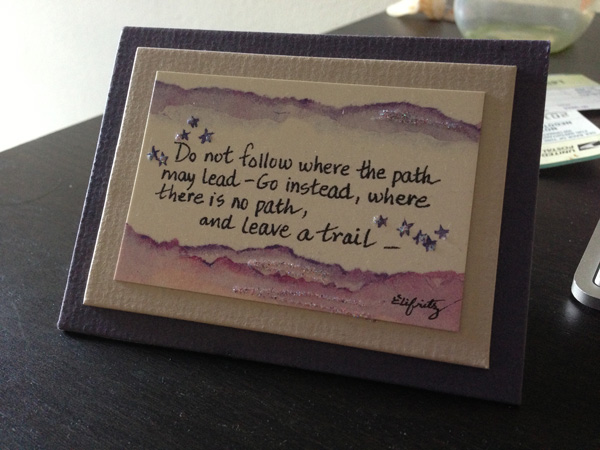 Do not follow where the path
may lead - Go instead, where
there is no path,
and leave a trail -
Elifritz